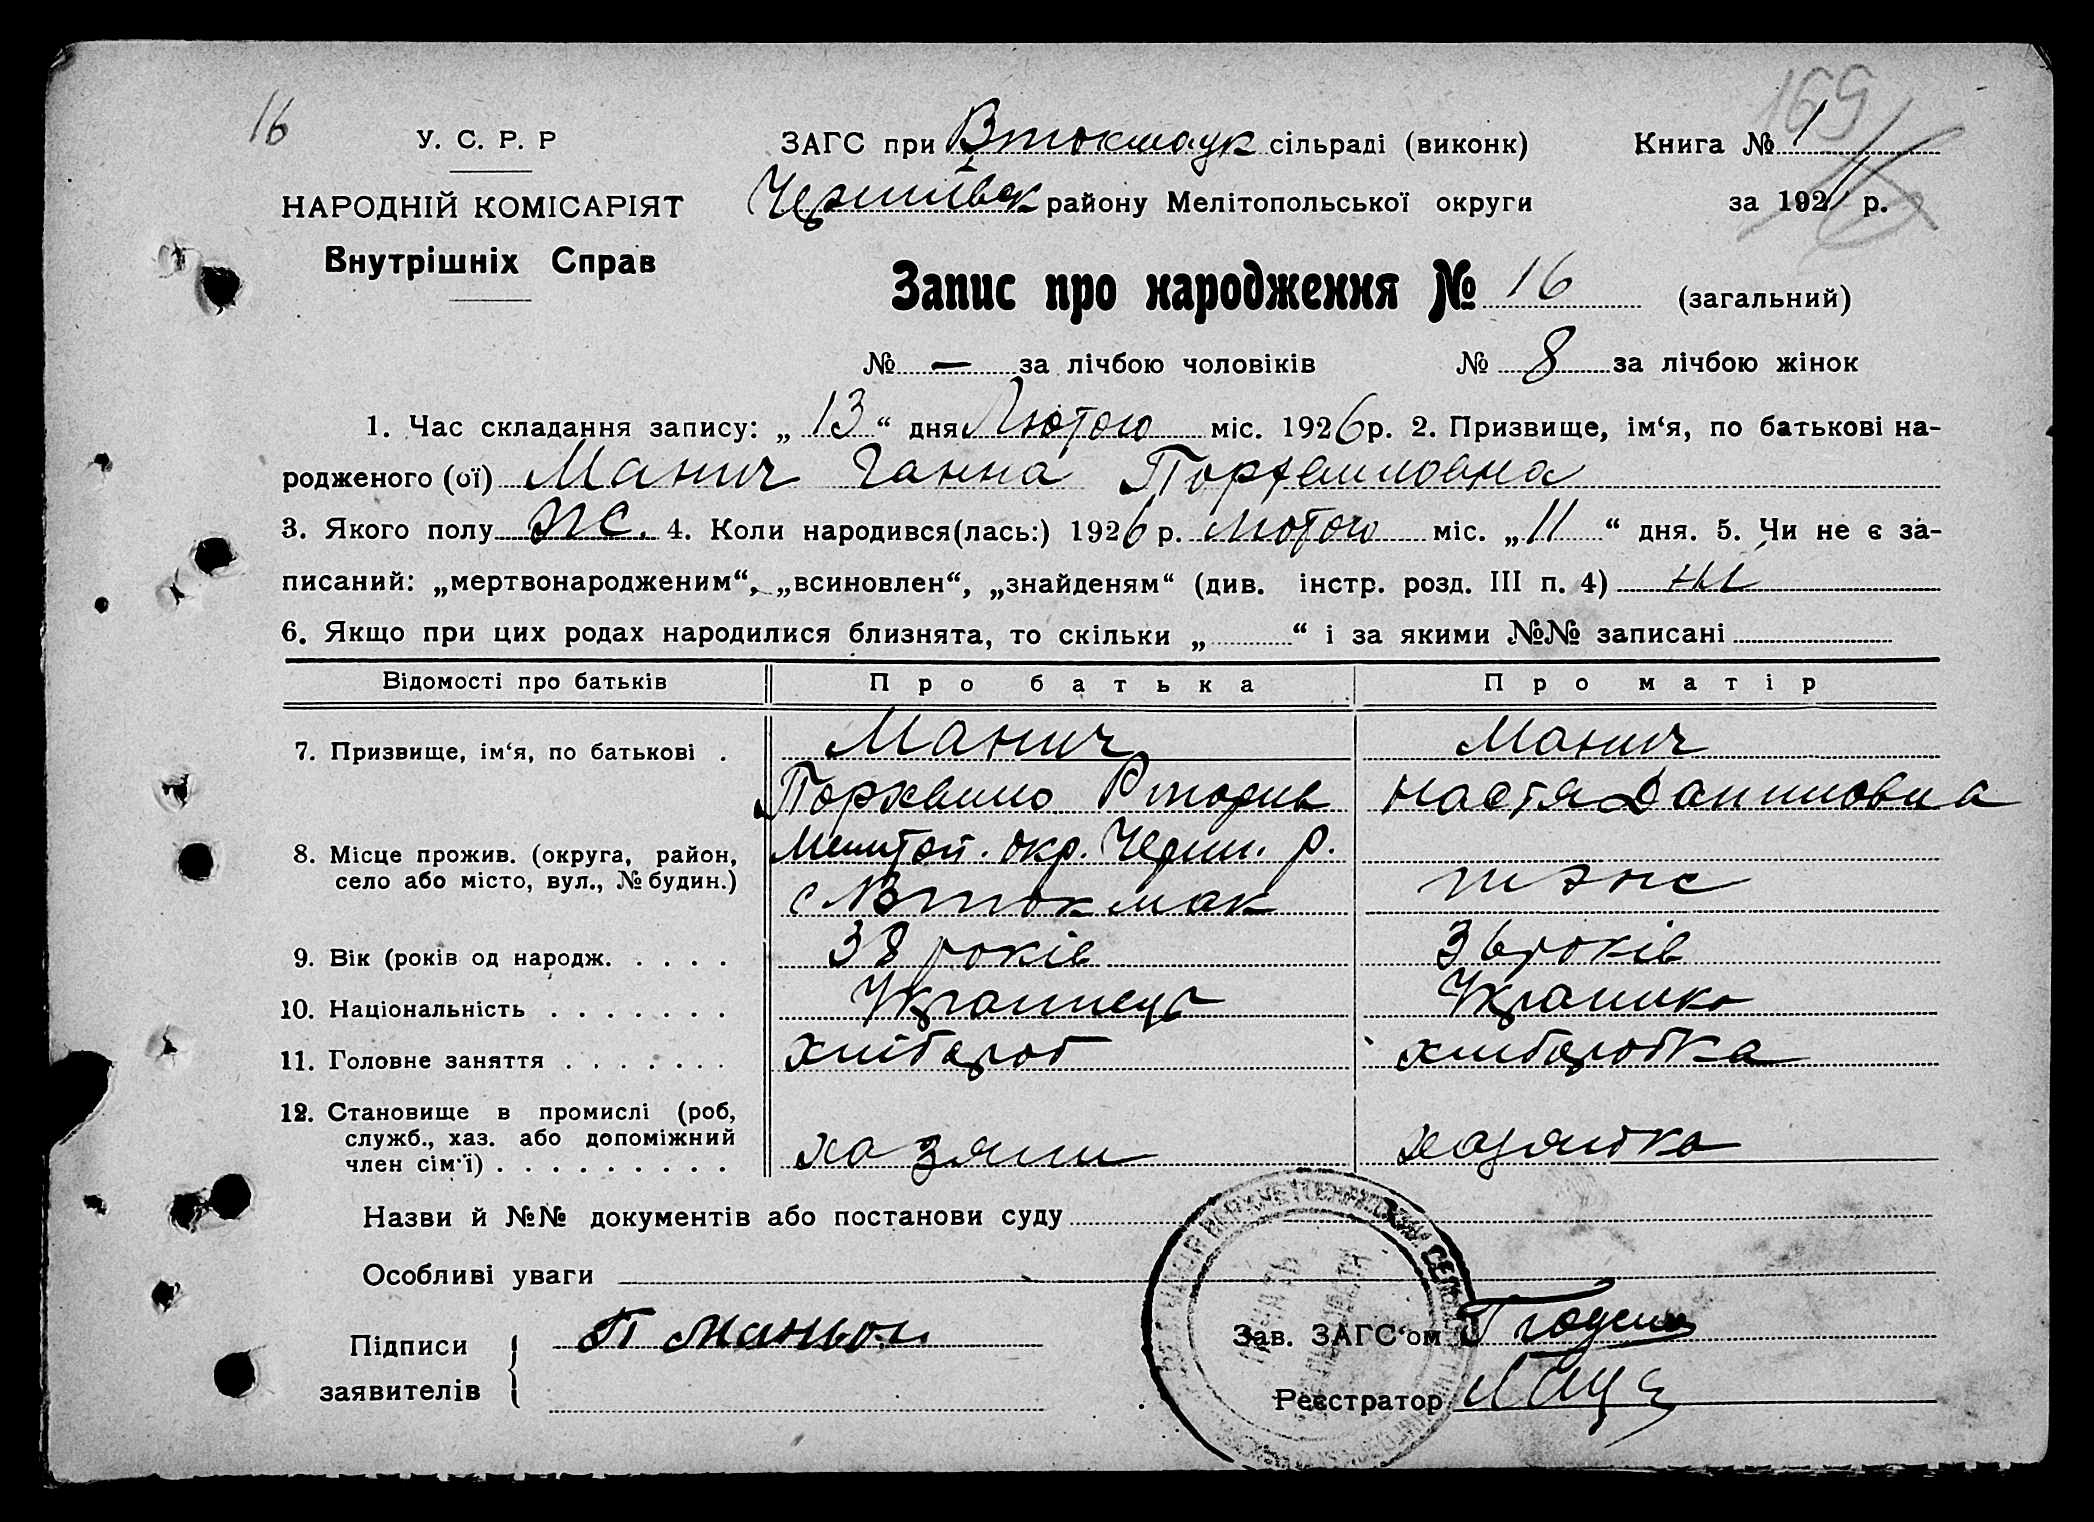 165
16
У. С. Р. Р
НАРОДНІЙ КОМІСАРІЯТ
Внутрішніх Справ
ЗАГС при Втокмацк сільраді (виконк) Книга № 1
району Мелітопольської округи за 192 р.
Запис про народження № 16 (загальний)
№ — за лічбою чоловіків № 8 за лічбою жінок
1. Час складання запису: „ 13 “ дня Лютого міс. 1926 р. 2. Призвище, ім‘я, по батькові на-
родженого (ої) Манич Ганна
3. Якого полу ж. 4. Коли народився(лась:) 1926 р. лютого міс. „ 11 “ дня. 5. Чи не є за-
писаний: „мертвонародженим“, „всиновлен“, „знайденям“ (див. інстр. розд. III п. 4) ні
6. Якщо при цих родах народилися близнята, то скільки „ “ і за якими №№ записані
Відомості про батьків Про батька Про матір
7. Призвище, ім‘я, по батькові . Манич Манич
Настя Даниловна
8. Місце прожив. (округа, район, Меліт. окр. Черниг. р.
село або місто, вул., № будин.) с Втокмак теже
9. Вік (років од народж. . . . . 38 років 36 років
10. Національність . . . . . . . Українець Українка
11. Головне заняття . . . . . . . хлібороб хліборобка
12. Становище в промислі (роб,
служб., хаз. або допоміжний
член сім‘ї) . . . . . . . . . хазяин хазяйка
Назви й №№ документів або постанови суду
Особливі уваги
Підписи П
заявителів
Зав. ЗАГС‘ом
Реєстратор